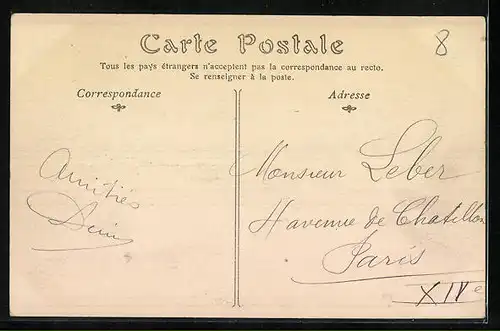 8
Carte Postale
Tous les pays étrangers n'acceptent pas la correspondance au recto.
Se renseigner à la poste.
Correspondance
Adresse
Amitiés
Monsieur Leber
avenue de Chatillon
Paris
XIVe